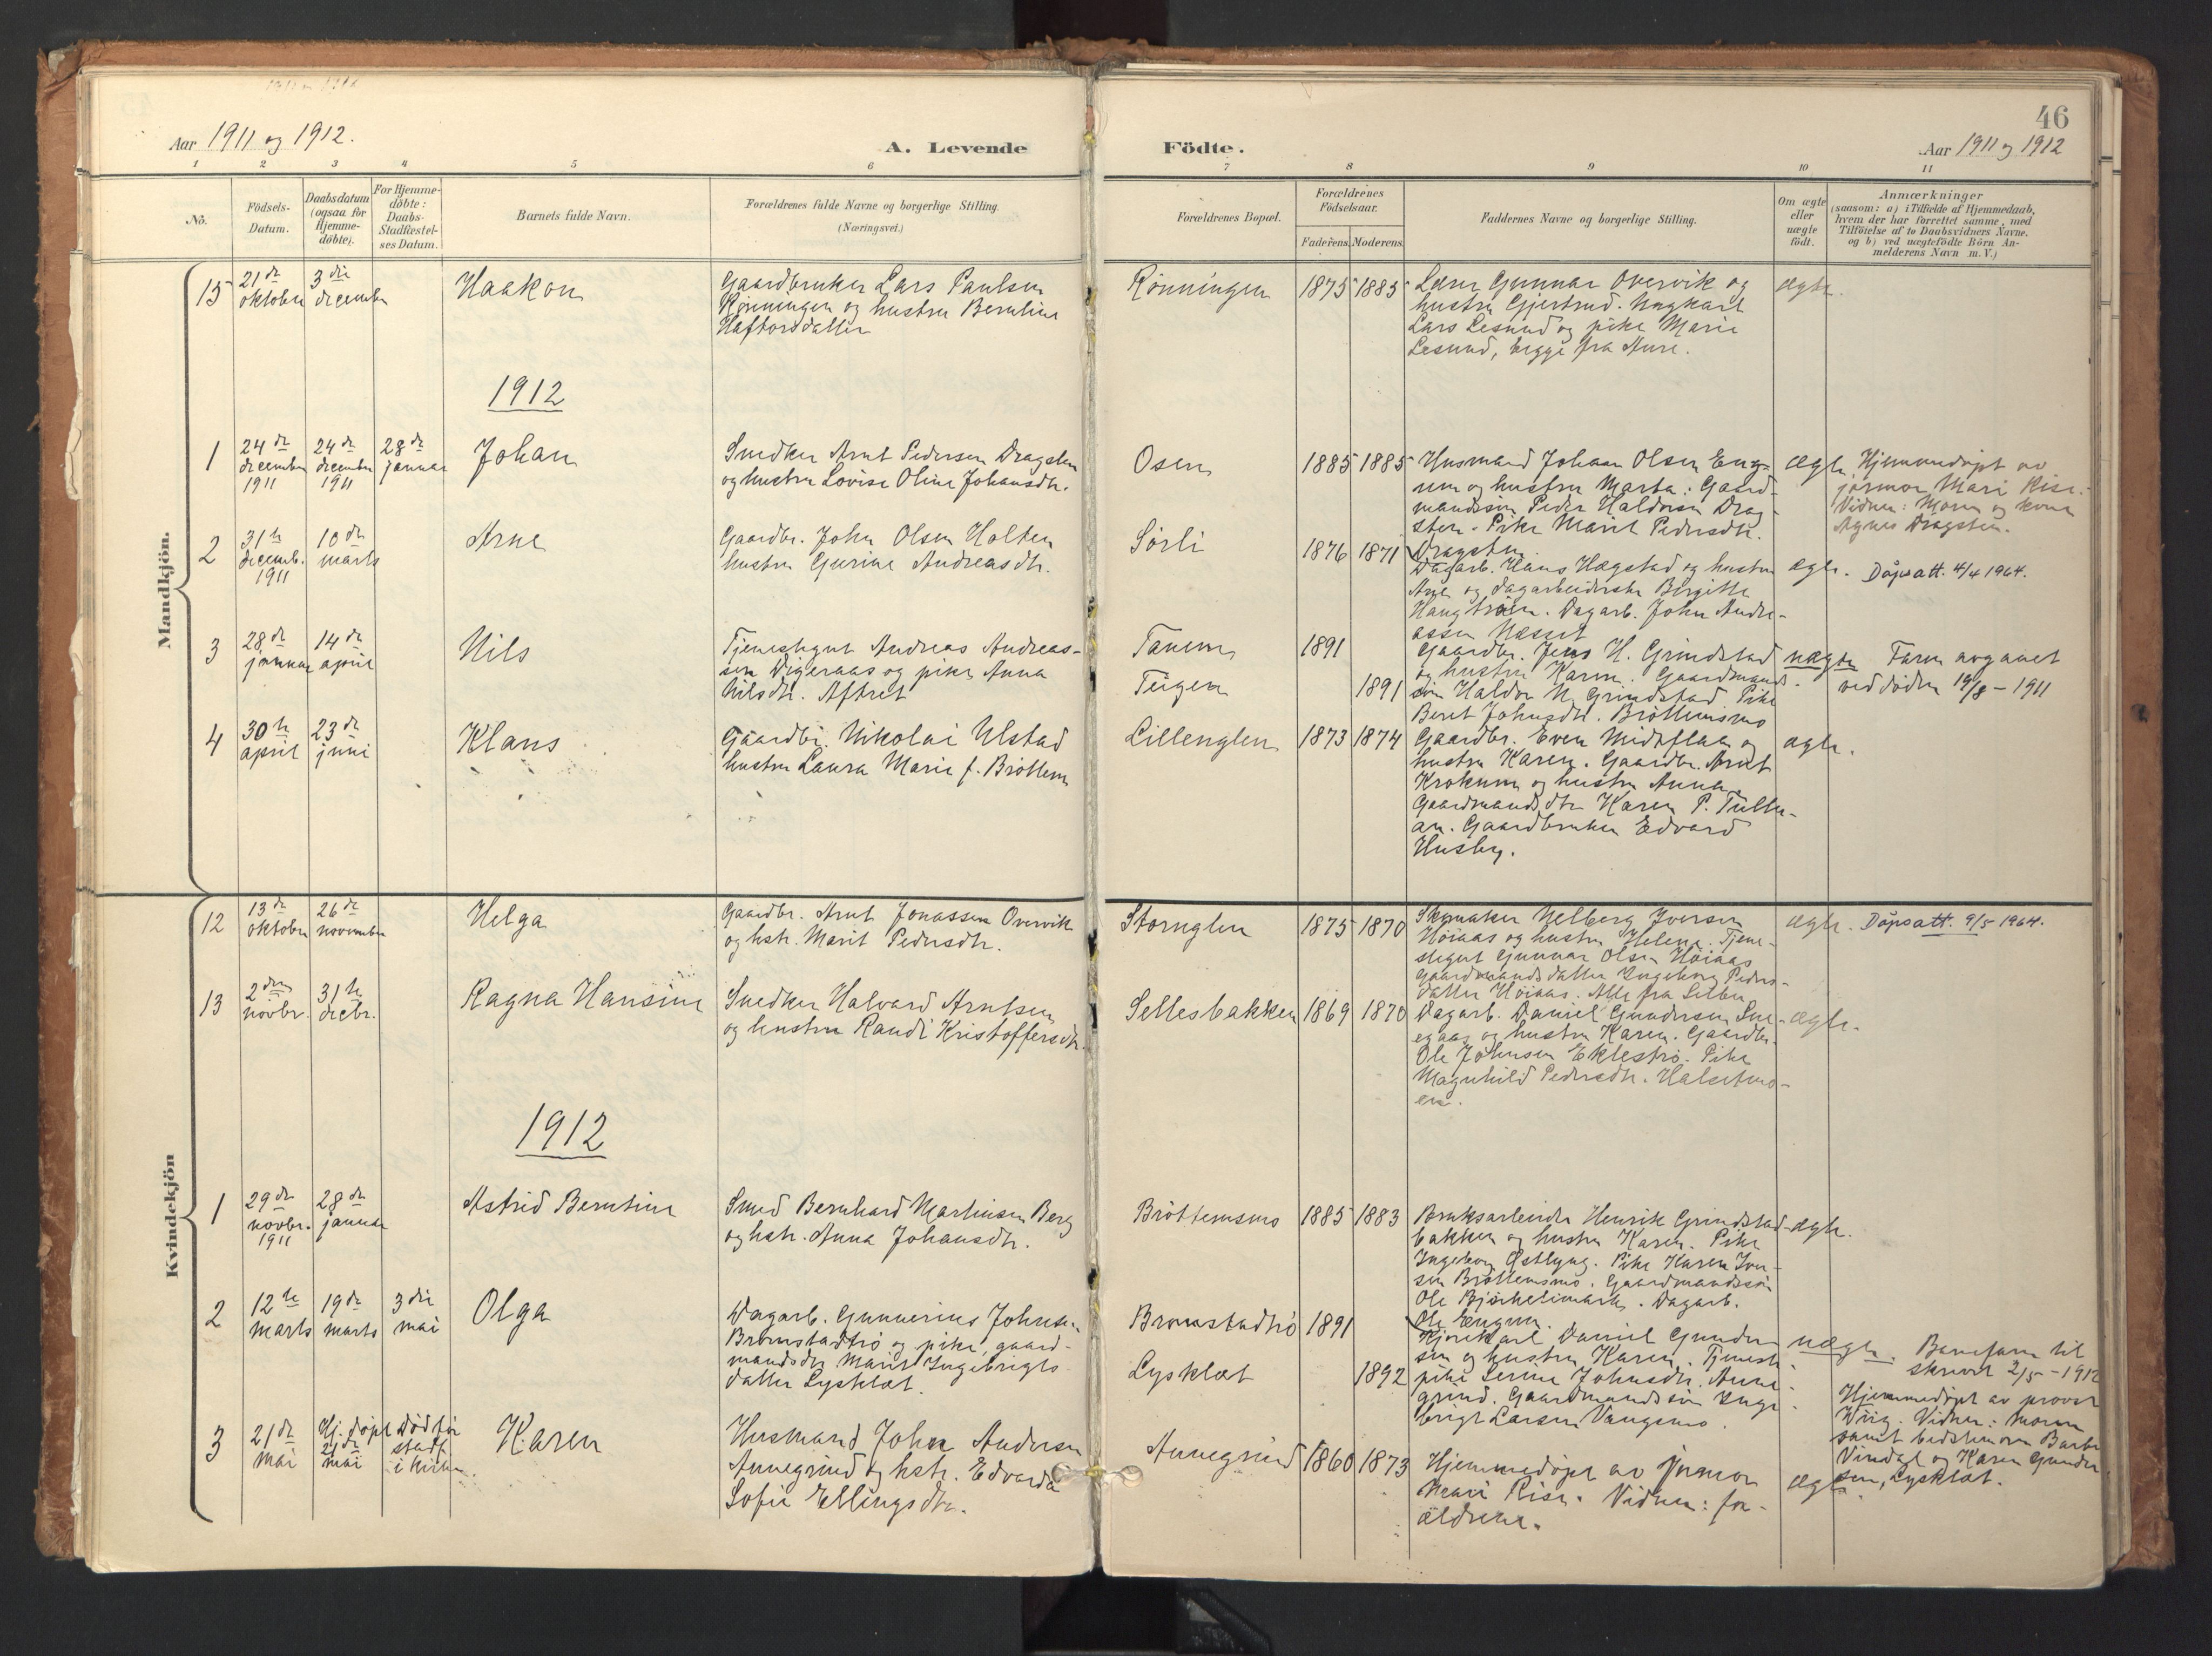 Aar 1911 og 1912.
A. Levende Födte.
46
Aar 1911 og 1912
1 2 3 4 5 6 7 8 9 10 11
No.
Födsels-
Datum.
Daabsdatum
(ogsaa for
Hjemme-
döbte).
For Hjemme-
döbte:
Daabs-
Stadfæstel-
ses Datum.
Barnets fulde Navn.
Forældrenes fulde Navne og borgerlige Stilling.
(Næringsvei.)
Forældrenes Bopæl.
Forældrenes
Födselsaar.
Faderens. Moderens.
Faddernes Navne og borgerlige Stilling.
Om ægte
eller
uægte
födt.
Anmærkninger
(saasom: a) i Tilfælde af Hjemmedaab,
hvem der har forrettet samme, med
Tilföielse af to Daabsvidners Navne,
og b) ved uægtefödte Börn An-
melderens Navn m. V.)
Mandkjön.
15
21de
oktober
3die
december
Haakon
Gaardbruker Lars Paulsen
Rönningen og hustru Berntine
Haftorsdatter
Rönningen
1875 1885
Lærer Gunnar Overvik og
hustru Gjertrud. Ungkarl
Lars Lesund og pike Marie
Lesund, begge fra Aure.
ægte.
1912
1
24de
december
1911
24de
december
1911
28de
januar
Johan
Snedker Arnt Pedersen Dragsten
og hustru Lovise Oline Johansdtr.
Osen
1885 1885
Husmand Johan Olsen Eng-
um og hustru Marta. Gaard-
mandssøn Peder Haldorsen Drag-
sten. Pike Marit Pedersdtr.
Dragsten.
ægte.
Hjemmedöpt av
jormor Mari Risø.
Vidner: Moren og kone
Agnes Dragsten.
2
31te
decemb.
1911
10de
marts
Arne
Gaardbr. John Olsen Holten
hustru Gurine Andreasdtr.
Sörli
1876 1871
Dagarb. Hans Hægstad og hustru
og dagarbeiderske Bergitte
Haugtröen. Dagarb. John Andre-
assen Næsset
ægte.
Dåpsatt. 4/4 1964.
3
28de
januar
14de
april
Nils
Tjenestegut Andreas Andreas-
sen Digeraas og pike Anna
Nilsdtr. Aftret
Tanem
Teigen
1891
1891
Gaardbr. Jens H. Grindstad
og hustru Karen. Gaardmands-
søn Haldor N. Grindstad Pike
Beret Johnsdtr. Bröttemsmo
uægte
Faren avgaaet
ved döden 19/8 - 1911
4
30te
april
23de
juni
Klaus
Gaardbr. Nikolai Ulstad
hustru Laura Marie f. Bröttem
Lilleuglen
1873 1874
Gaardbr. Even Midtflaa og
hustru Karen. Gaardbr. Arnt
Krokum og hustru Anna
Gaardmandsdtr Karen P. Tuller-
an. Gaardbruker Edvard
Husby.
ægte.
Kvindekjön
12
13de
oktober
26de
november
Helga
Gaardbr. Arnt Jonassen Overvik
og hstr. Marit Pedersdtr.
Storuglen
1875 1870
Skomaker Helberg Iversen
Höiaas og hustru Helene. Tjene-
stegut Gunnar Olsen Höiaas
Gaardmandsdatter Ingeborg Peders-
datter Höiaas. Alle fra Selbu
ægte.
Dåpsatt. 9/5 1964.
13
2den
novbr.
31te
decbr.
Ragna Hansine
Snedker Halvard Arntsen
og hustru Randi Kristoffersdtr.
Sellesbakken
1869 1870
Dagarb. Daniel Gundersen Sne-
egaas og hustru Karen. Gaardbr.
Ole Johnsen Ekleströ. Pike
Magnhild Pedersdtr. Halsetmo-
en.
ægte.
1912
1
29de
novbr.
1911
28de
januar
Astrid Berntine
Smed Bernhard Martinsen Berg
og hstr. Anna Johansdtr.
Bröttemsmo
1885 1883
Bruksarbeider Henrik Grindstad-
bakken og hustru Karen. Pike
Ingeborg Östlyng. Pike Karen Iver-
sen Bröttemsmo. Gaardmandssøn
Ole Björkelimark. Dagarb.
Ole Engum.
ægte.
2
12te
marts
19de
marts
3die
mai
Olga
Dagarb. Gunnerius Johnsen
Bromstadtrö og pike, gaard-
mandsdtr Marit Ingebrigts-
datter Lysklæt.
Bromstadtrö
Lysklæt
1891
1892
Kjörekarl Daniel Gunder-
sen og hustru Karen. Tjeneste-
pike Serine Johnsdtr. Anne-
grind. Gaardmandssøn Inge-
brigt Larsen Vangsmo.
uægte.
Barnefaren til-
skrevet 2/5 - 1912
Hjemmedöpt av provst
Wiig. Vidner: Moren
samt bedstemoren Barbr
Vindal og Karen Gunder-
sen, Lysklæt.
3
21de
mai
Hj. döpt
21de
mai
Död för
stadf.
i kirken.
Karen
Husmand John Andersen
Annegrind og hstr. Edvarda
Sofie Ellingsdtr.
Annegrind
1860 1873
Hjemmedöpt av jormor
Mari Risø. Vidner: for-
ældrene.
ægte